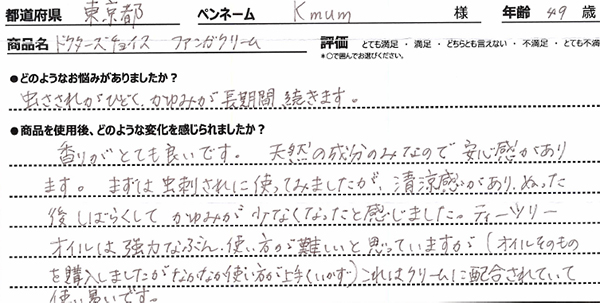 都道府県 東京都 ペンネーム Kmum 様 年齢 49 歳
商品名 ドクターズチョイス ファンガクリーム 評価 とても満足 ・ 満足 ・ どちらとも言えない ・ 不満足 ・ とても不満
*○で囲んでお選びください。
●どのようなお悩みがありましたか？
虫さされがひどく、かゆみが長期間続きます。
●商品を使用後、どのような変化を感じられましたか？
香りがとても良いです。 天然の成分のみなので安心感があり
ます。 まずは虫刺されに使ってみましたが、清涼感があり、ぬった
後しばらくしてかゆみが少なくなったと感じました。ティーツリー
オイルは強力なぶん、使い方が難しいと思っていますが（オイルそのもの
を購入しましたがなかなか使い方が上手くいかず）これはクリームに配合されていて
使い易いです。